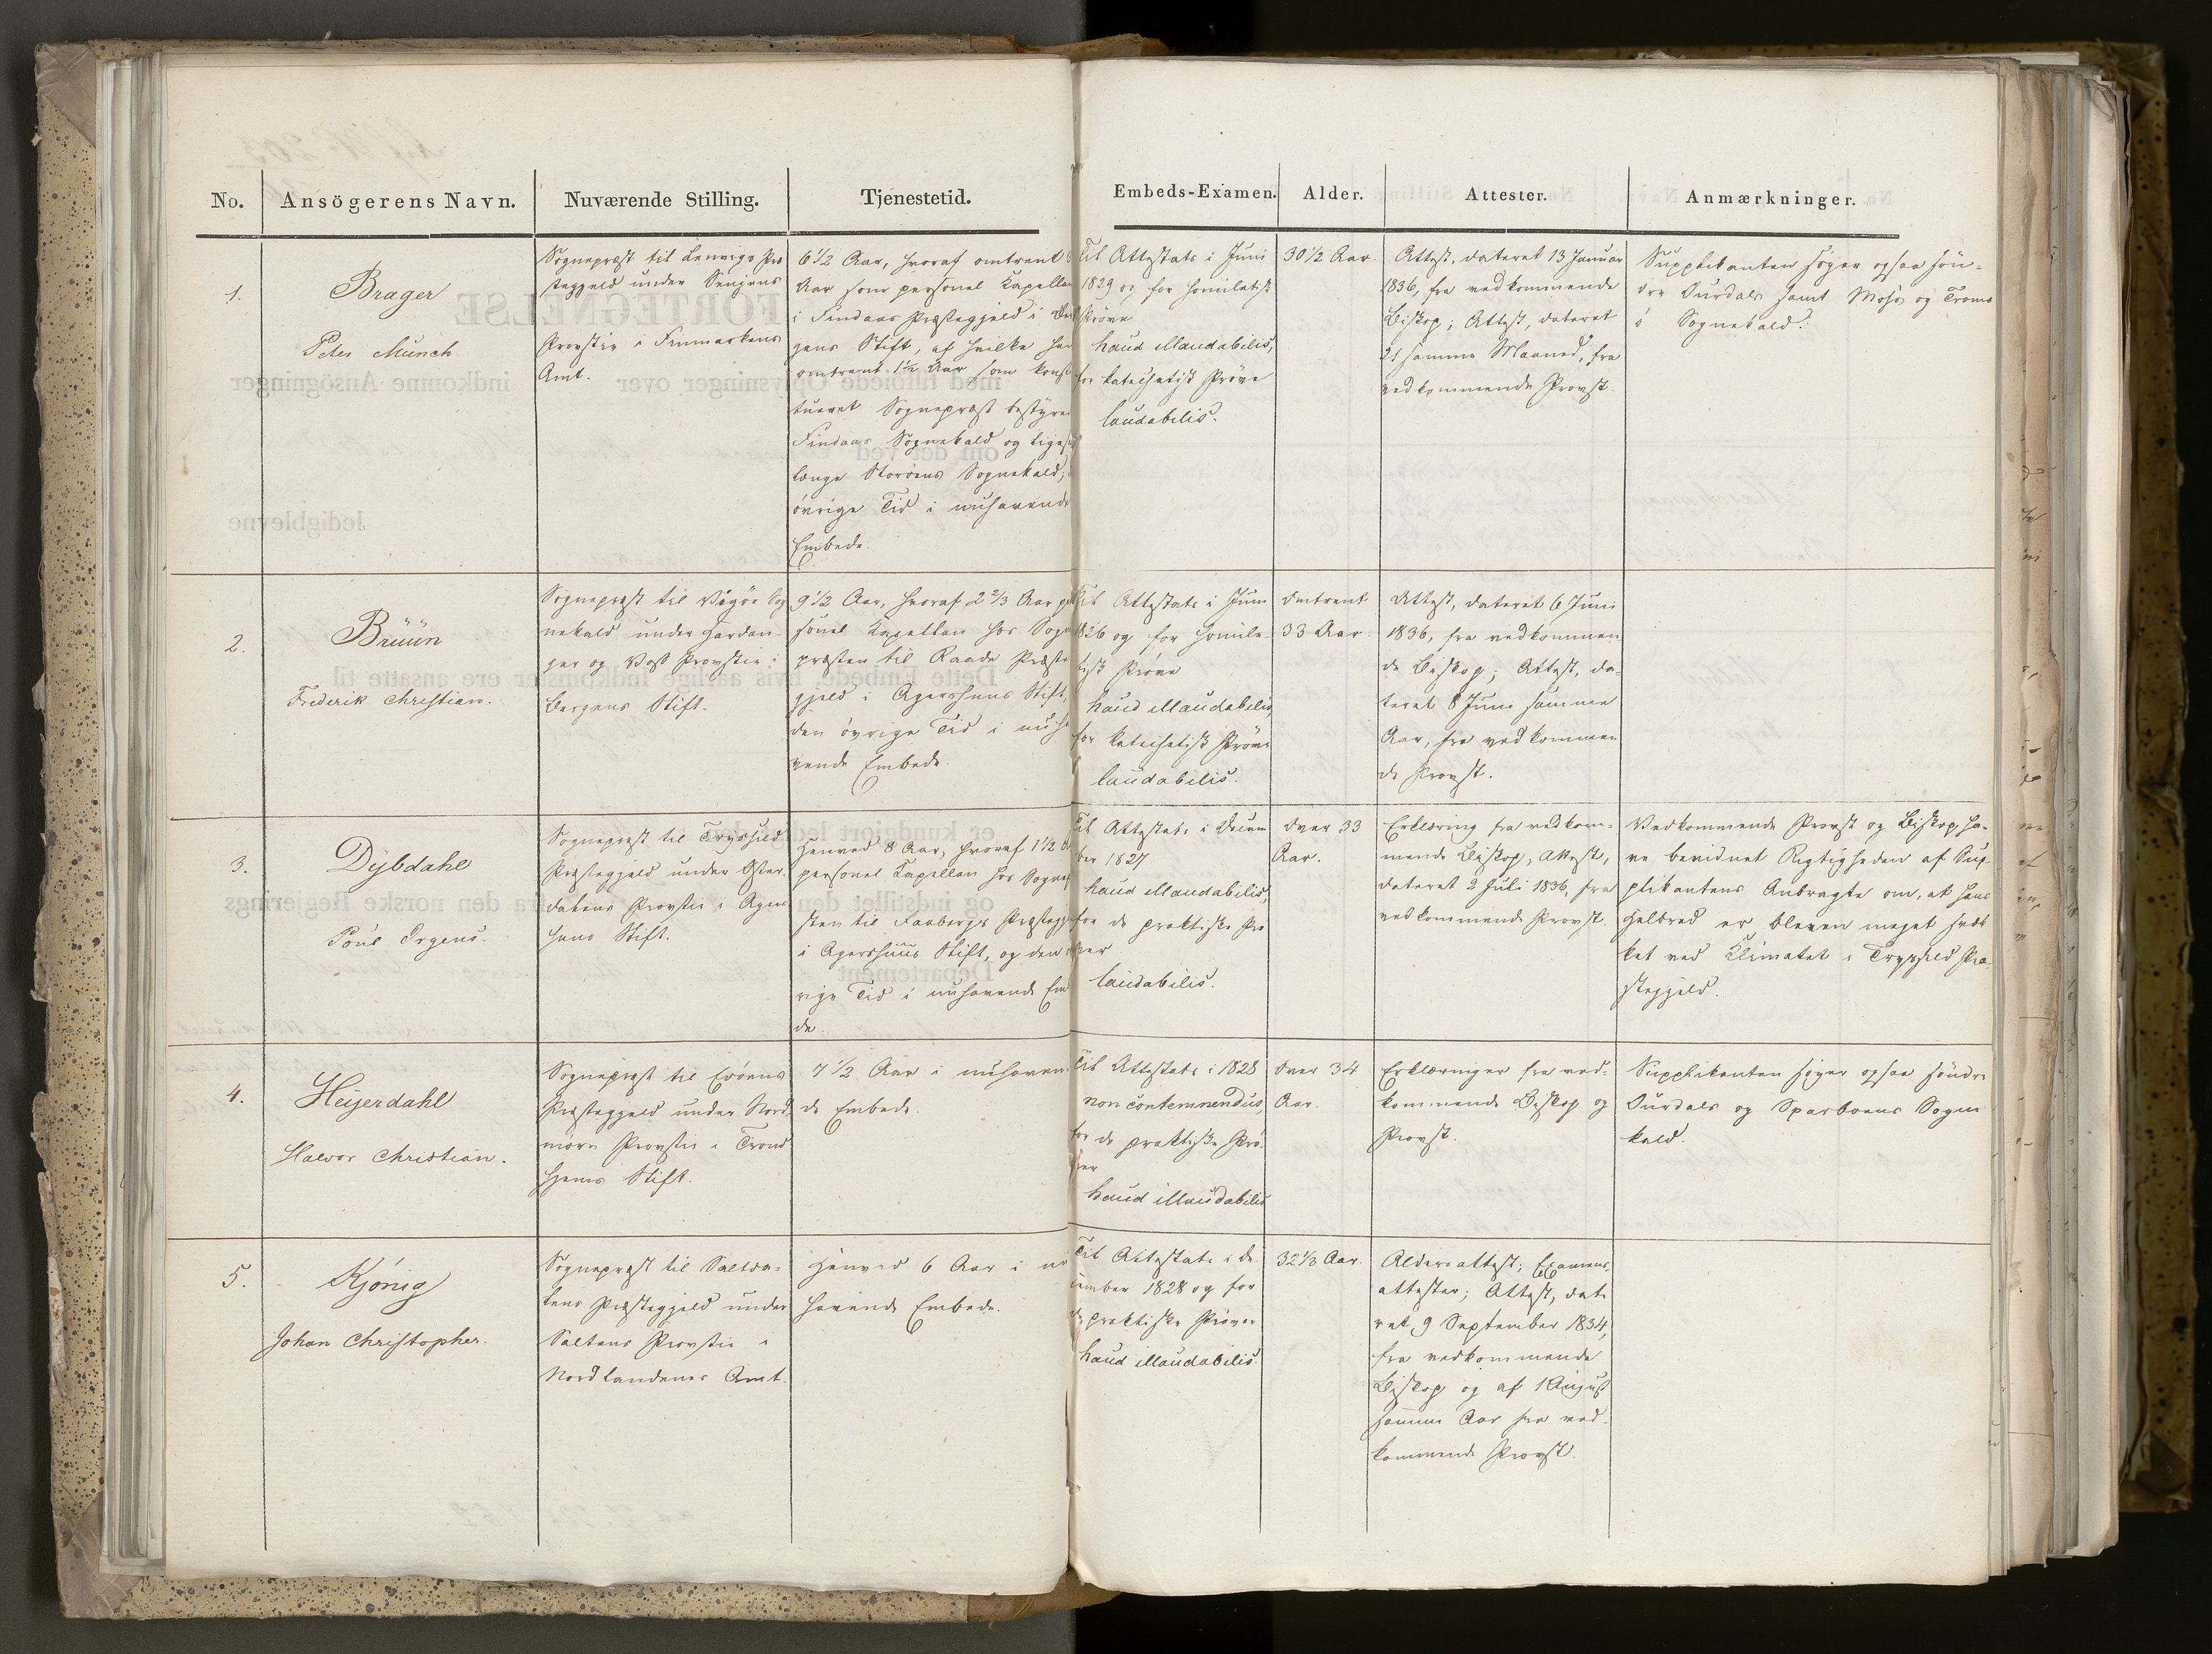 No.
Ansögerens Navn.
Nuværende Stilling.
Tjenestetid.
Embeds-Examen.
Alder.
Attester.
Anmærkninger.
1.
Brager
Peter Munch
Sognepræst til Lenvigs Præ
stegjeld under Senjens
Provstie i Finmarkens
Amt.
6 1/2 Aar, hvoraf omtrent
Aar som personel Kapellan
i Findaas Præstegjeld i Ber
gens Stift, af hvilke han
omtrent 1 1/2 Aar som konsti
tueret Sognepræst bestyre
Findaas Sognekald og lige
længe Storöens Sognekald,
övrige Tid i nuhavende
Embede.
Til Attestats i Juni
1829 og for homiletisk
Pröve
haud illaudabilis,
for katechetisk Pröve
laudabilis.
30 1/2 Aar.
Attest, dateret 13 Januar
1836, fra vedkommende
Biskop; Attest, dateret
21 samme Maaned, fra
vedkommende Provst.
Supplikanten söger ogsaa Sön-
dre Ourdals samt Mosos og Troms
ö Sognekald.
2.
Bruun
Frederik Christian.
Sognepræst til Vigör Sog
nekald under Hardan-
ger og Voss Provstie i
Bergens Stift.
9 1/2 Aar, hvoraf 2 2/3 Aar per
sonel Kapellan hos Sogne
præsten til Raade Præste
gjeld i Agershuus Stift,
den övrige Tid i nuha
vende Embede.
Til Attestats i Juni
1826 og for homile-
tisk Pröve
haud illaudabilis,
for katechetisk Pröve
laudabilis.
omtrent
33 Aar.
Attest, dateret 6 Juni
1836, fra vedkommen
de Biskop; Attest, da-
teret 8 Juni samme
Aar, fra vedkommen
de Provst.
3.
Dybdahl
Poul Irgens.
Sognepræst til Trysild
Præstegjeld under Öster-
dalens Provstie i Agers
huus Stift.
henved 8 Aar, hvoraf 1 1/2
personel Kapellan hos Sogne
sten til Faabergs Præstegj
i Agershuus Stift, og den
rige Tid i nuhavende Em
de.
Til Attestats i Decem
ber 1827
haud illaudabilis,
for de praktiske Prö
ver
laudabilis.
over 33
Aar.
Erklæring fra vedkom-
mende Biskop, Attest,
dateret 2 Juli 1836, fra
vedkommende Provst.
Vedkommende Provst og Biskop ha-
ve bevidnet Rigtigheden af Sup-
plikantens Anbragte om, at hans
Helbred er bleven meget svæk
ket ved Klimatet i Trysild Præ-
stegjeld.
4.
Heyerdahl
Halvor Christian.
Sognepræst til Edöens
Præstegjeld under Nord
möre Provstie i Trond
hjems Stift.
7 1/2 Aar i nuhaven
de Embede.
Til Attestats i 1828
non contemnendus,
for de praktiske Prö-
ver
haud illaudabilis
over 34
Aar.
Erklæringer fra ved-
kommende Biskop og
Provst.
Supplikanten söger ogsaa Söndre
Ourdals og Sparboens Sogne
kald.
5.
Kjönig
Johan Christopher.
Sognepræst til Saltda-
lens Præstegjeld under
Saltens Provstie i
Nordlandenes Amt.
henved 6 Aar i nu
havende Embede.
Til Attestats i De
cember 1828 og for
de praktiske Pröver
haud illaudabilis.
32 1/3 Aar.
Aldersattest; Examens
attester; Attest, date
ret 9 September 1834,
fra vedkommende
Biskop og af 1 August
samme Aar fra ved-
kommende Provst.